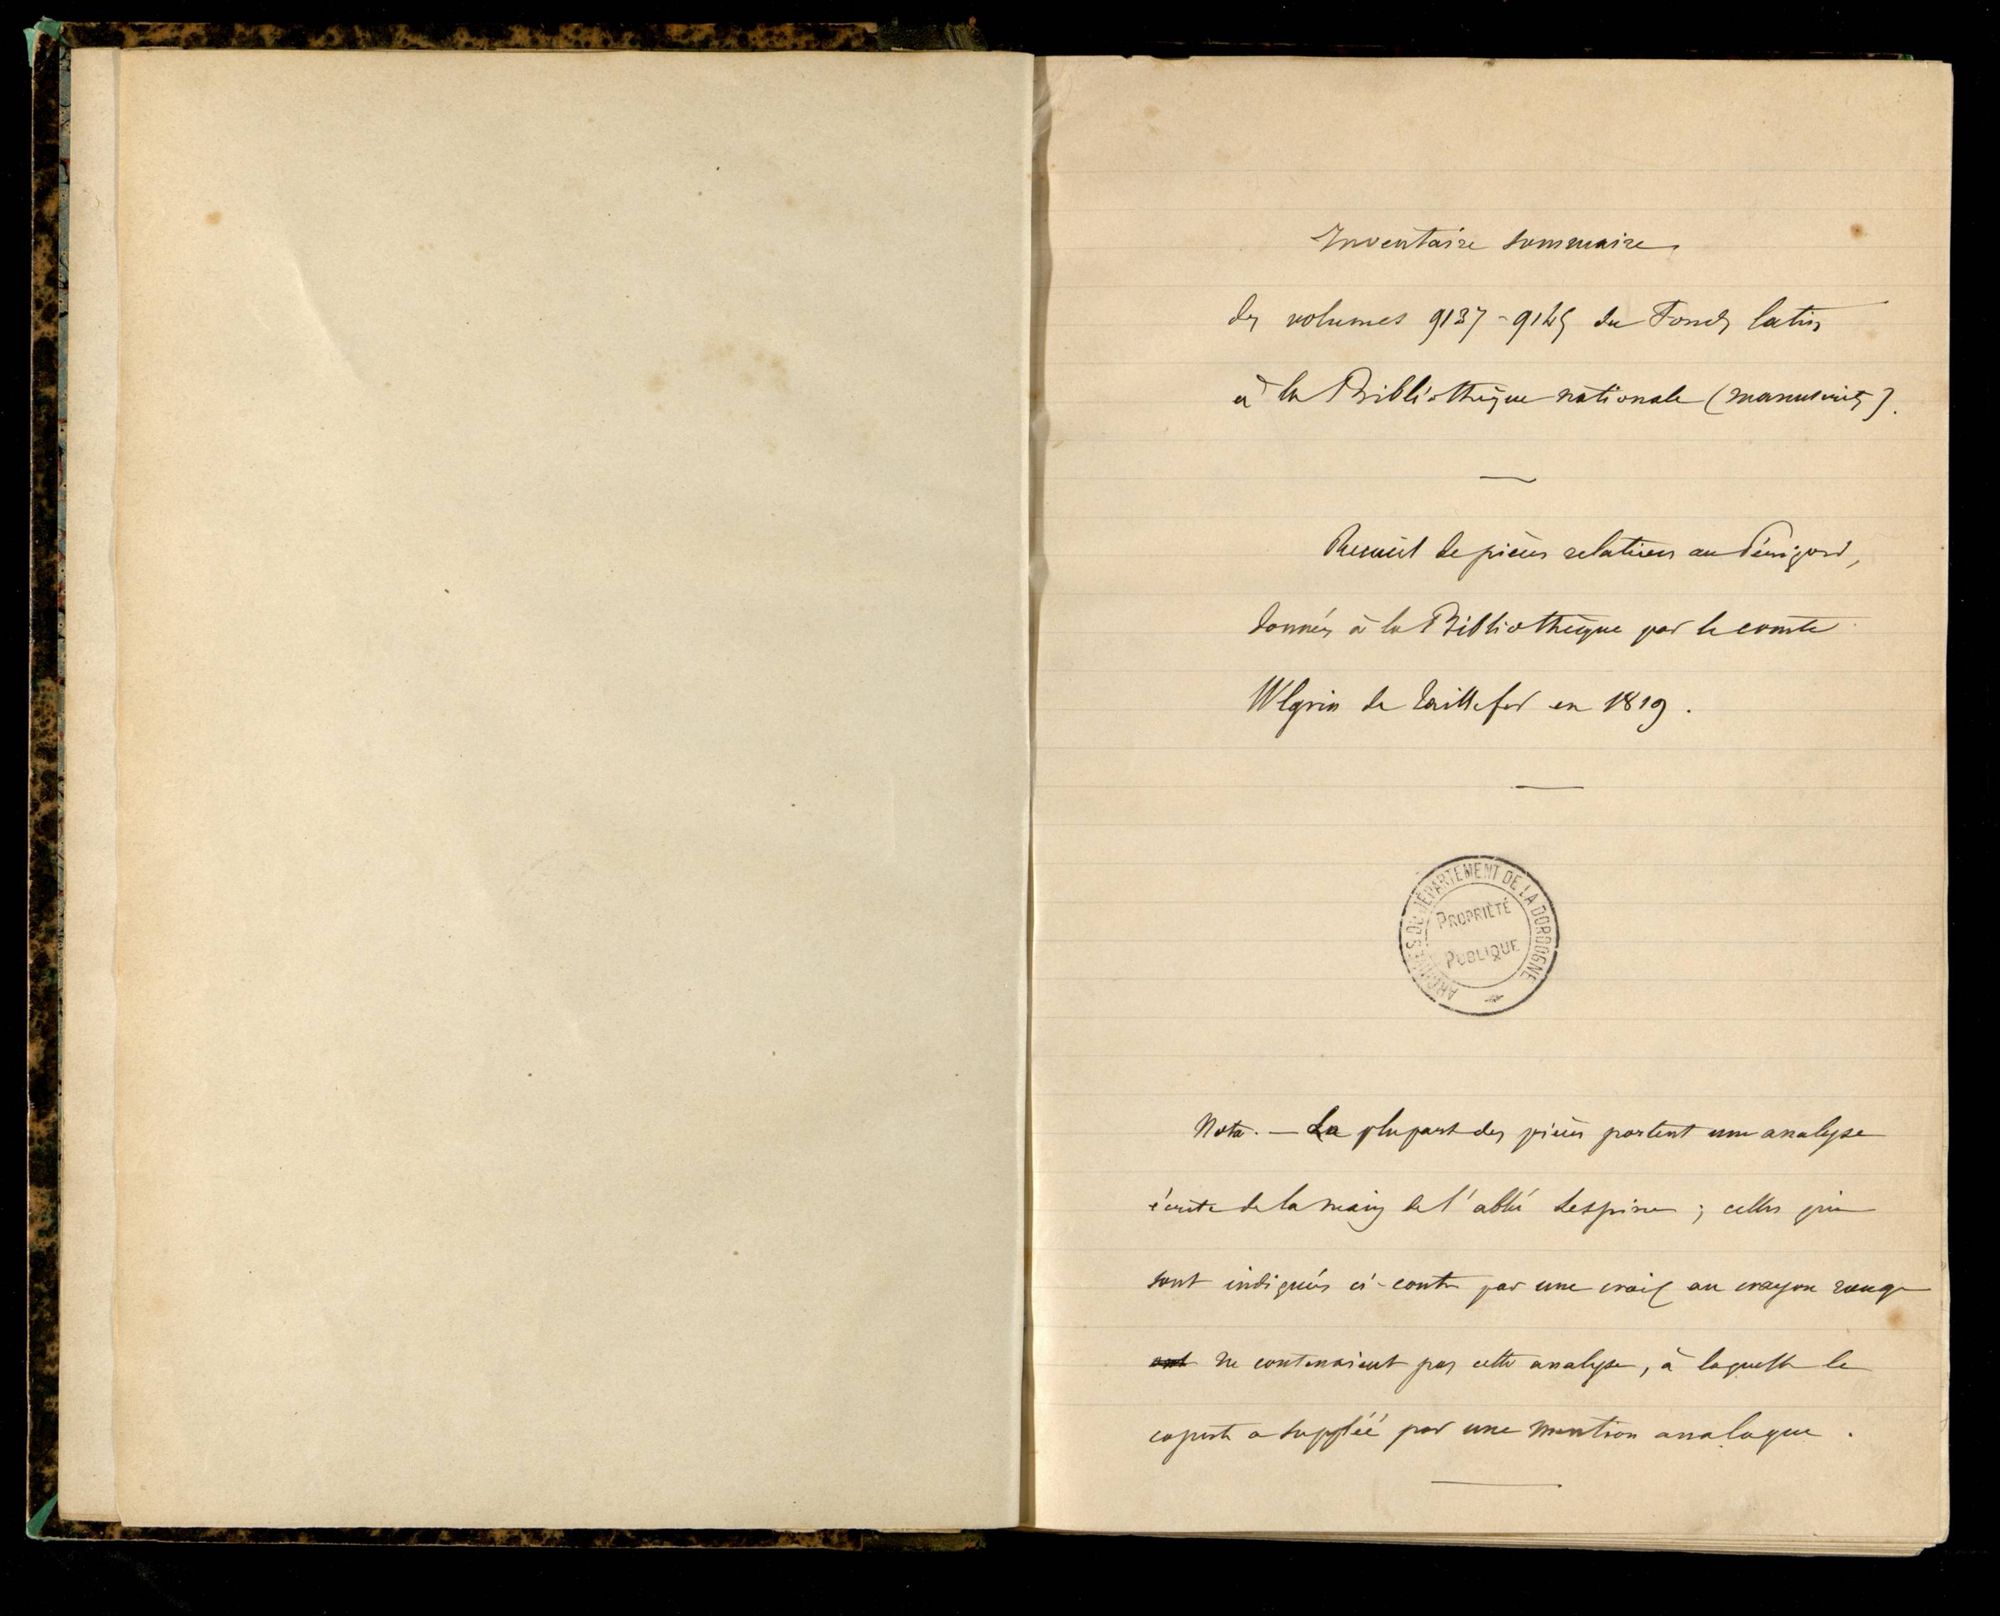 Inventaire sommaire
des volumes 9137-9145 du Fonds latin
à la Bibliothèque nationale (manuscrits).
Recueil de pièces relatives au Périgord,
données à la Bibliothèque par le comte
Wlgrin de Taillefer en 1819.
ARCHIVES DU DÉPARTEMENT DE LA DORDOGNE
PROPRIÉTÉ
PUBLIQUE
Nota. — La plupart des pièces portent une analyse
écrite de la main de l'abbé Lespine ; celles qui
sont indiquées ci-contre par une croix au crayon rouge
ne contenaient pas cette analyse, à laquelle le
copiste a suppléé par une mention analogue.